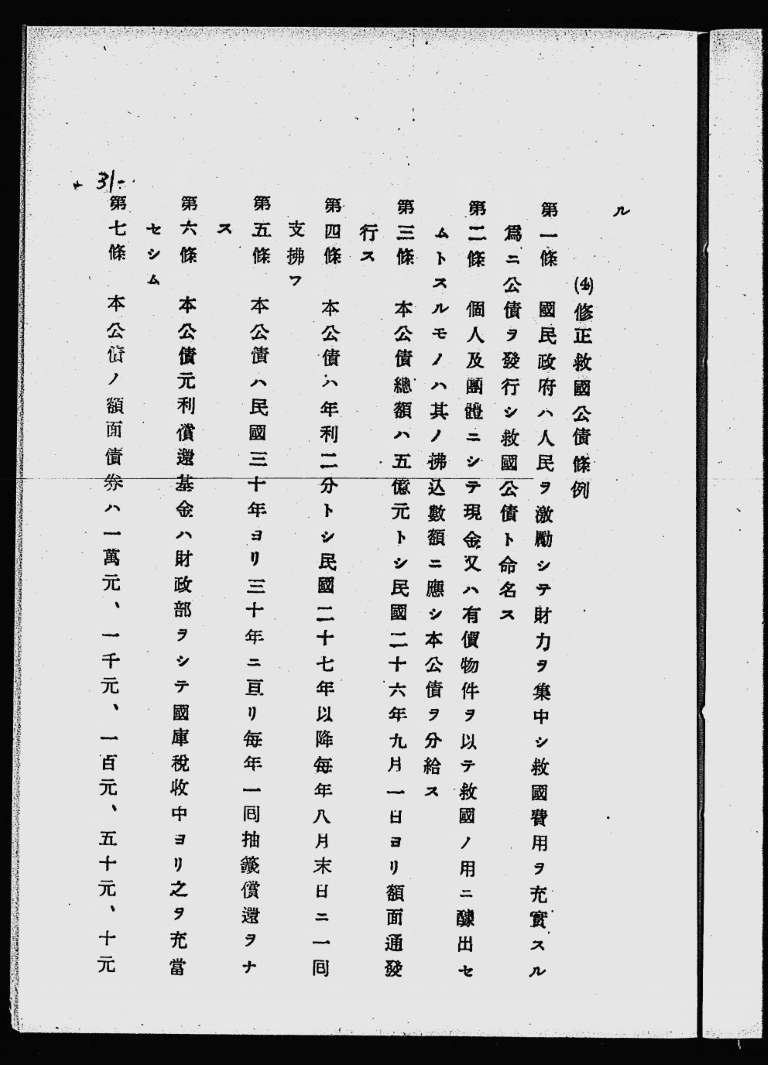 ル
(4)修正救國公債條例
第一條　國民政府ハ人民ヲ激勵シテ財力ヲ集中シ救國費用ヲ充實スル
爲ニ公債ヲ發行シ救國公債ト命名ス
第二條　個人及團體ニシテ現金又ハ有價物件ヲ以テ救國ノ用ニ醵出セ
ムトスルモノハ其ノ拂込數額ニ應シ本公債ヲ分給ス
第三條　本公債總額ハ五億元トシ民國二十六年九月一日ヨリ額面通發
行ス
第四條　本公債ハ年利二分トシ民國二十七年以降每年八月末日ニ一回
支拂フ
第五條　本公債ハ民國三十年ヨリ三十年ニ亘リ每年一回抽籤償還ヲナ
ス
第六條　本公債元利償還基金ハ財政部ヲシテ國庫稅收中ヨリ之ヲ充當
セシム
第七條　本公債ノ額面債券ハ一萬元、一千元、一百元、五十元、十元
31-